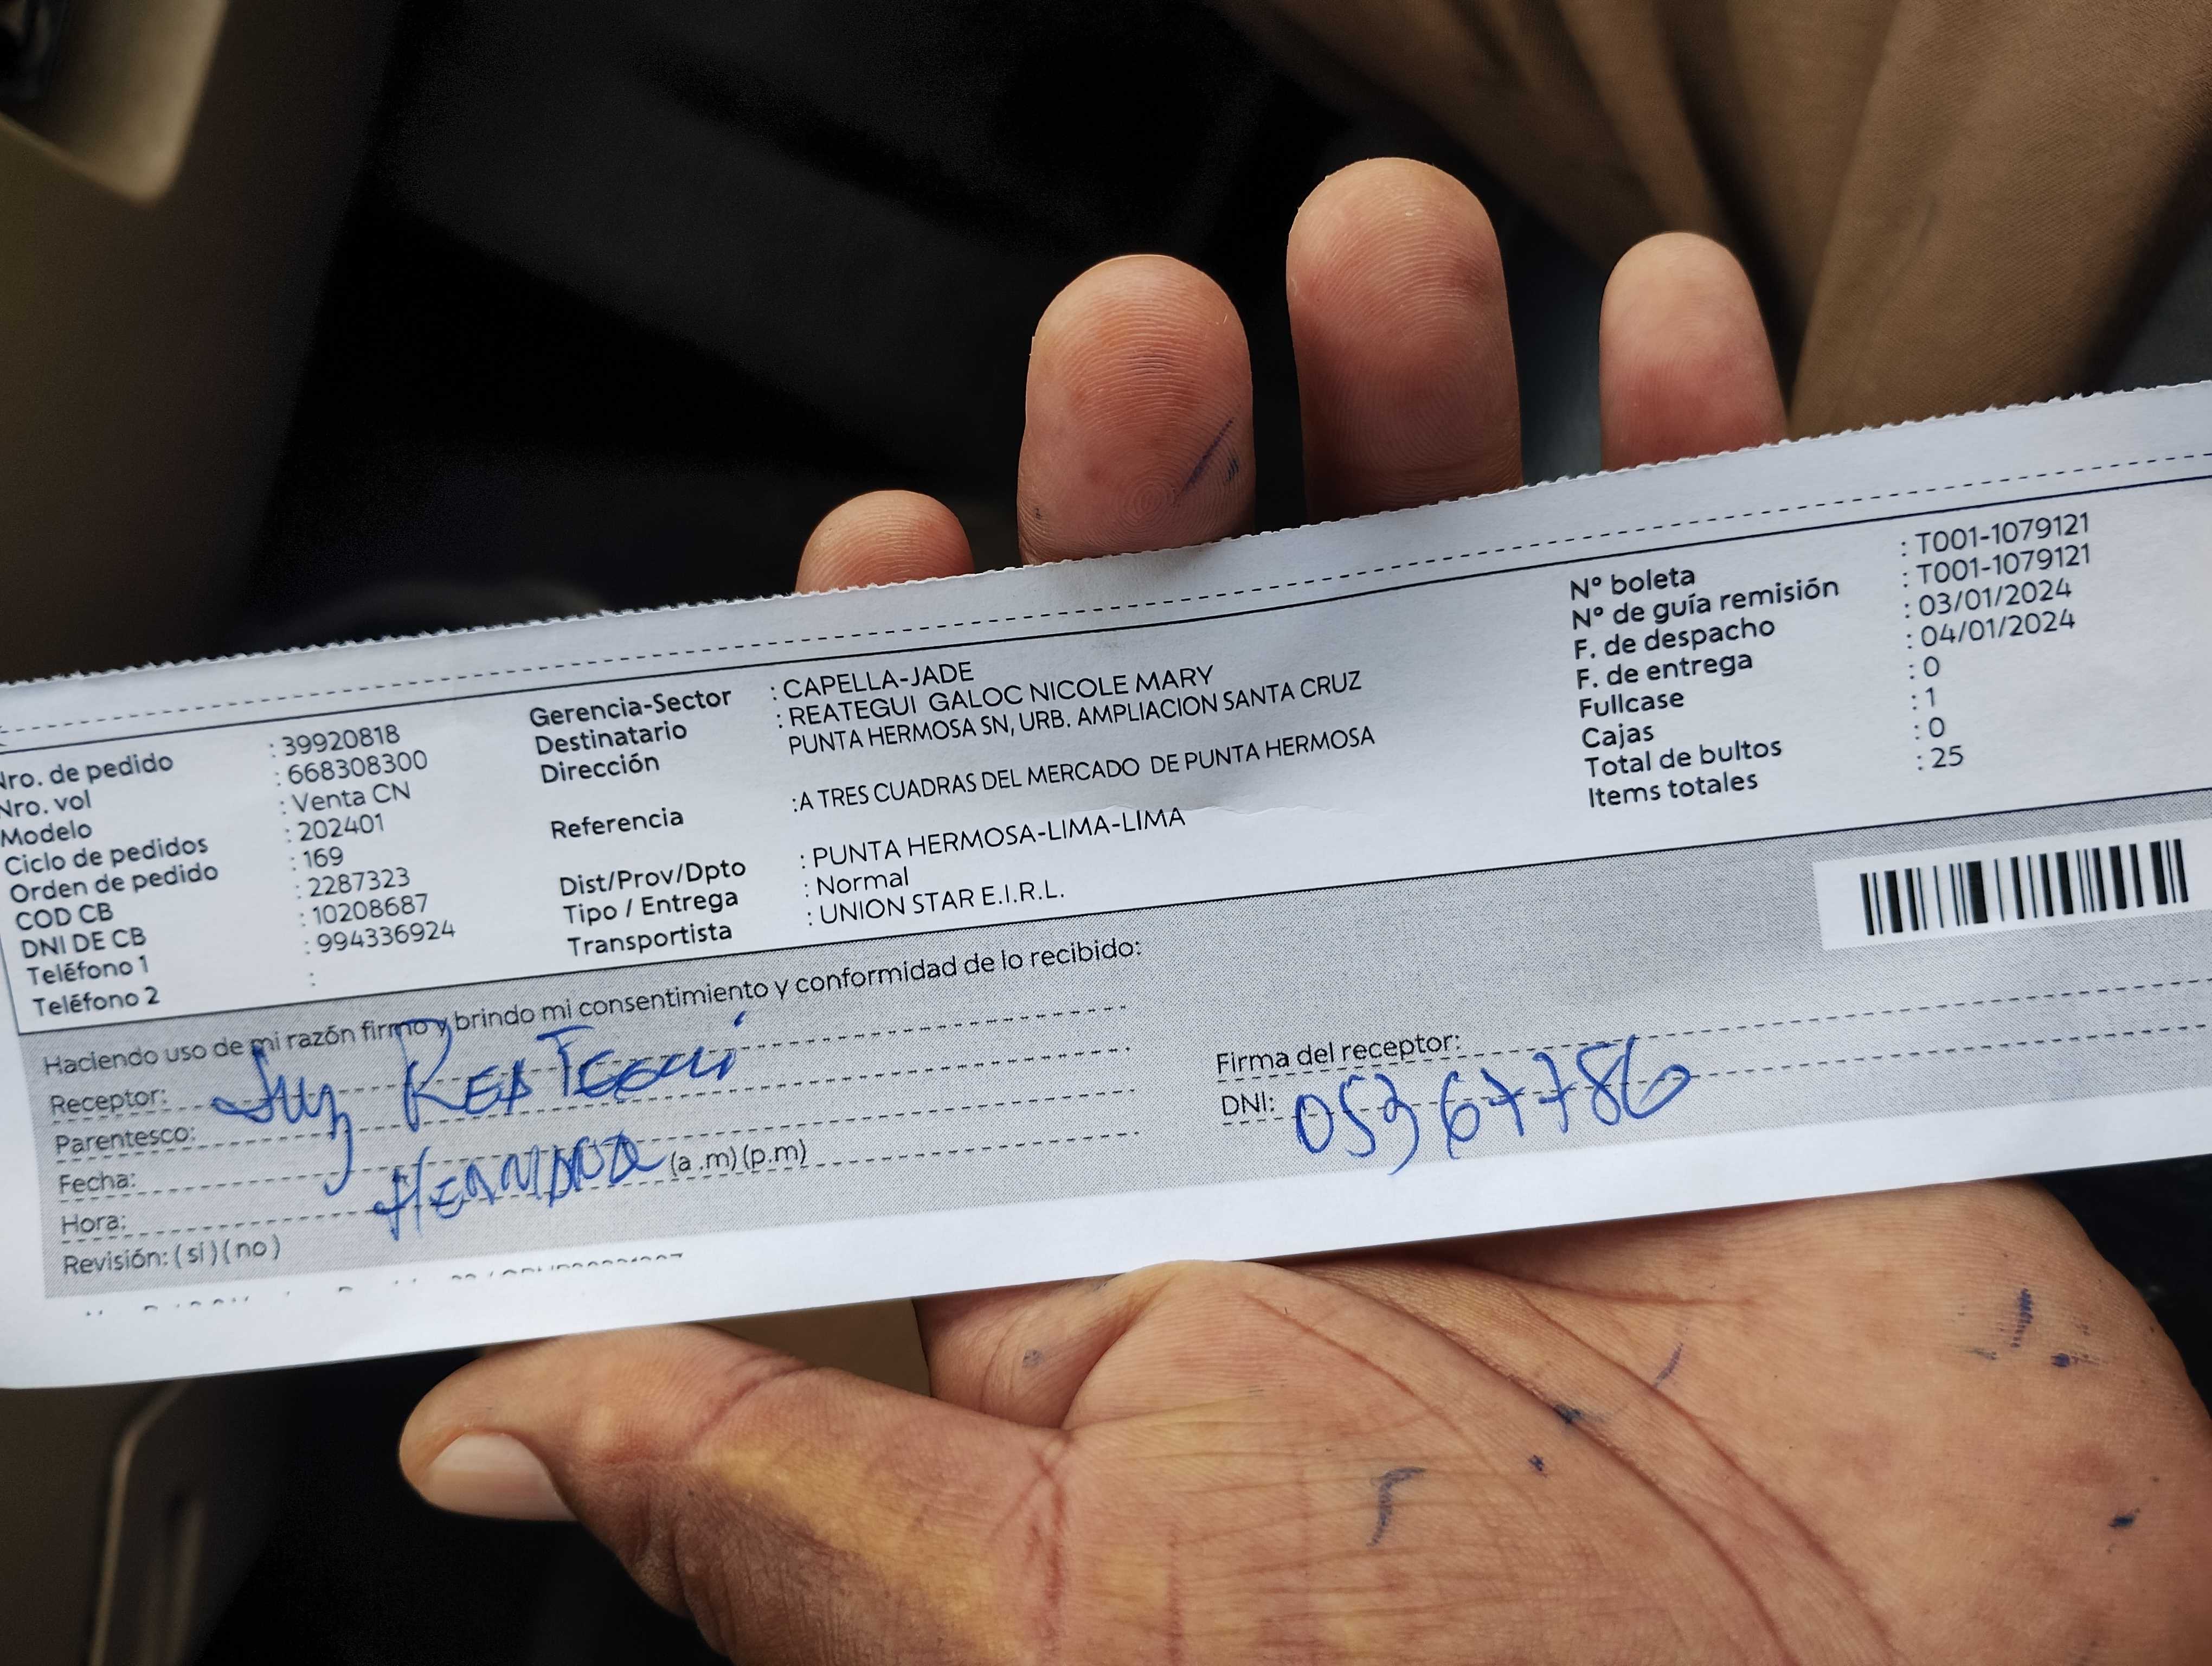 Nro. de pedido : 39920818
Nro. vol : 668308300
Modelo : Venta CN
Ciclo de pedidos : 202401
Orden de pedido : 169
COD CB : 2287323
DNI DE CB : 10208687
Teléfono 1 : 994336924
Teléfono 2 :
Gerencia-Sector : CAPELLA-JADE
Destinatario : REATEGUI GALOC NICOLE MARY
Dirección PUNTA HERMOSA SN, URB. AMPLIACION SANTA CRUZ
Referencia :A TRES CUADRAS DEL MERCADO DE PUNTA HERMOSA
Dist/Prov/Dpto : PUNTA HERMOSA-LIMA-LIMA
Tipo / Entrega : Normal
Transportista : UNION STAR E.I.R.L.
Nº boleta : T001-1079121
Nº de guía remisión : T001-1079121
F. de despacho : 03/01/2024
F. de entrega : 04/01/2024
Fullcase : 0
Cajas : 1
Total de bultos : 0
Items totales : 25
Haciendo uso de mi razón firmo y brindo mi consentimiento y conformidad de lo recibido:
Receptor: Reategui
Parentesco:
Fecha: Hermana
Hora: (a .m) (p.m)
Revisión: ( si ) ( no )
Firma del receptor:
DNI: 05367786